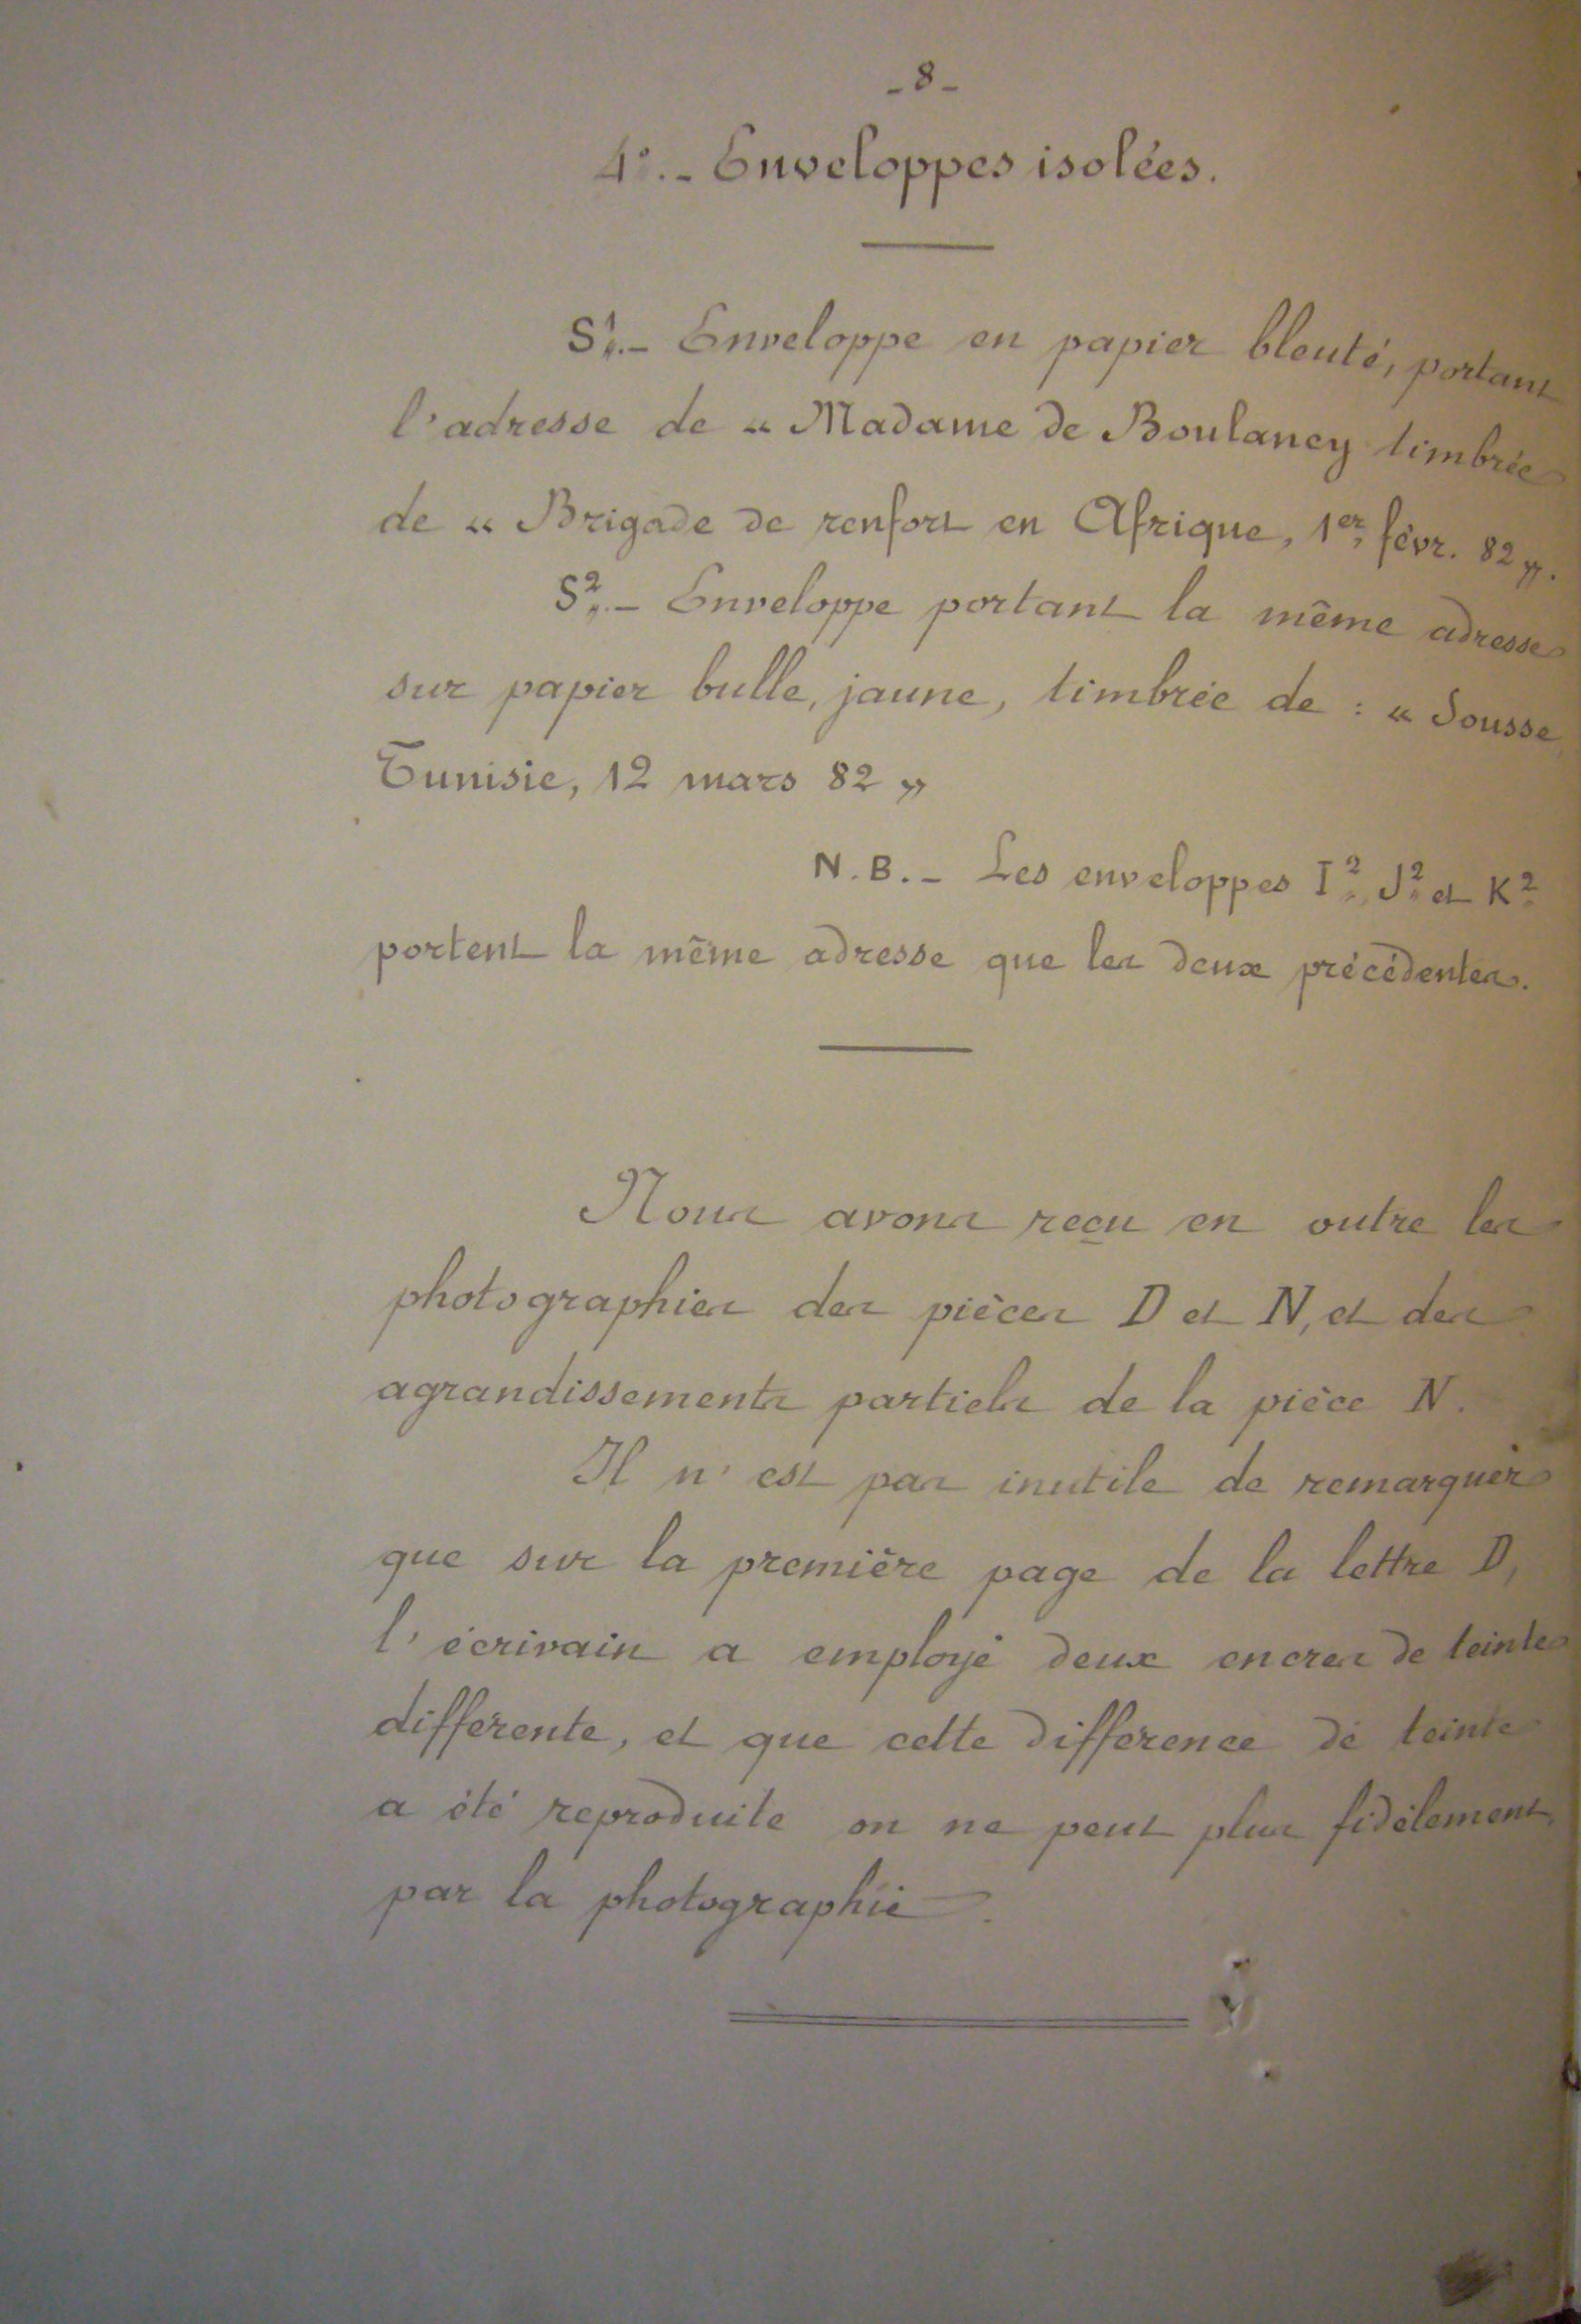 - 8 -
4°. - Enveloppes isolées.
S¹. - Enveloppe en papier bleuté, portant
l'adresse de « Madame de Boulancy timbrée
de « Brigade de renfort en Afrique, 1er févr. 82 ».
S². - Enveloppe portant la même adresse
sur papier bulle, jaune, timbrée de : « Sousse
Tunisie, 12 mars 82 »
N. B. - Les enveloppes I², J² et K²
portent la même adresse que les deux précédentes.
Nous avons reçu en outre les
photographies des pièces D et N, et des
agrandissements partiels de la pièce N.
Il n'est pas inutile de remarquer
que sur la première page de la lettre D,
l'écrivain a employé deux encres de teinte
différente, et que cette différence de teinte
a été reproduite on ne peut plus fidèlement
par la photographie.